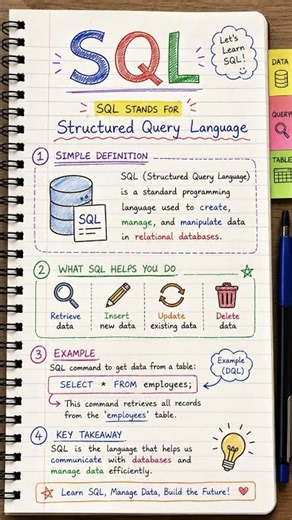 SQL
Let's
Learn
SQL!
DATA
QUERY
TABLE
SQL STANDS FOR
Structured Query Language
1 SIMPLE DEFINITION
SQL
SQL (Structured Query Language)
is a standard programming
language used to create,
manage, and manipulate data
in relational databases.
2 WHAT SQL HELPS YOU DO
Retrieve
data
Insert
new data
Update
existing data
Delete
data
3 EXAMPLE
SQL command to get data from a table:
SELECT * FROM employees;
Example
(DQL)
This command retrieves all records
from the 'employees' table.
4 KEY TAKEAWAY
SQL is the language that helps us
communicate with databases and
manage data efficiently.
Learn SQL, Manage Data, Build the Future!